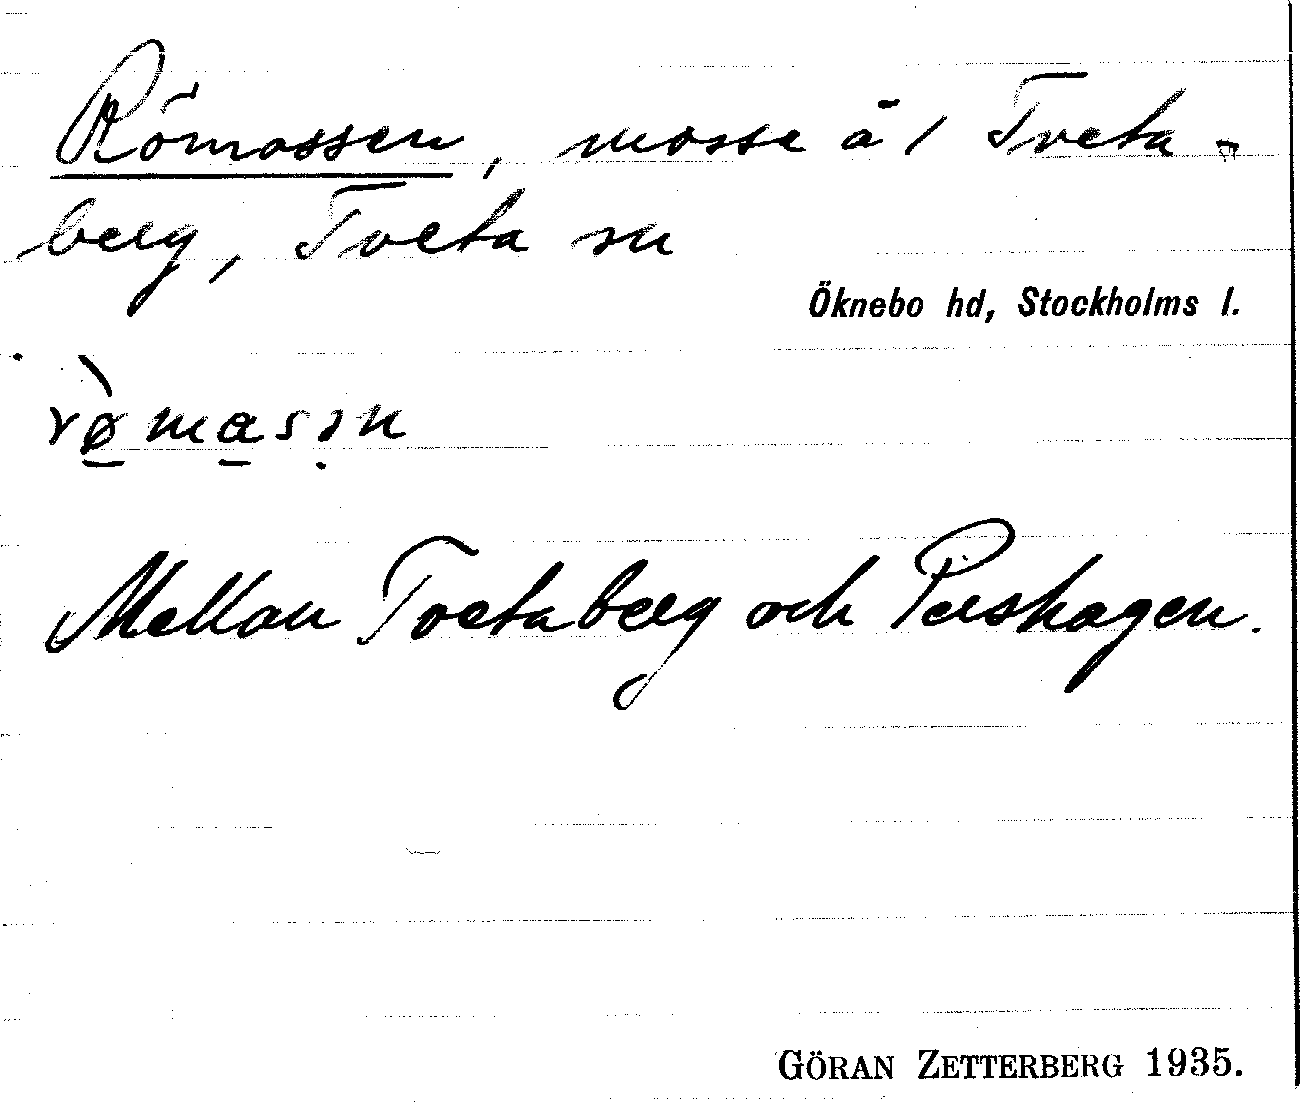 Römossen, mosse å 1 Tveta-
berg, Tveta sn
Öknebo hd, Stockholms l.
rø̀masɩn
Mellan Tvetaberg och Pershagen.
GÖRAN ZETTERBERG 1935.